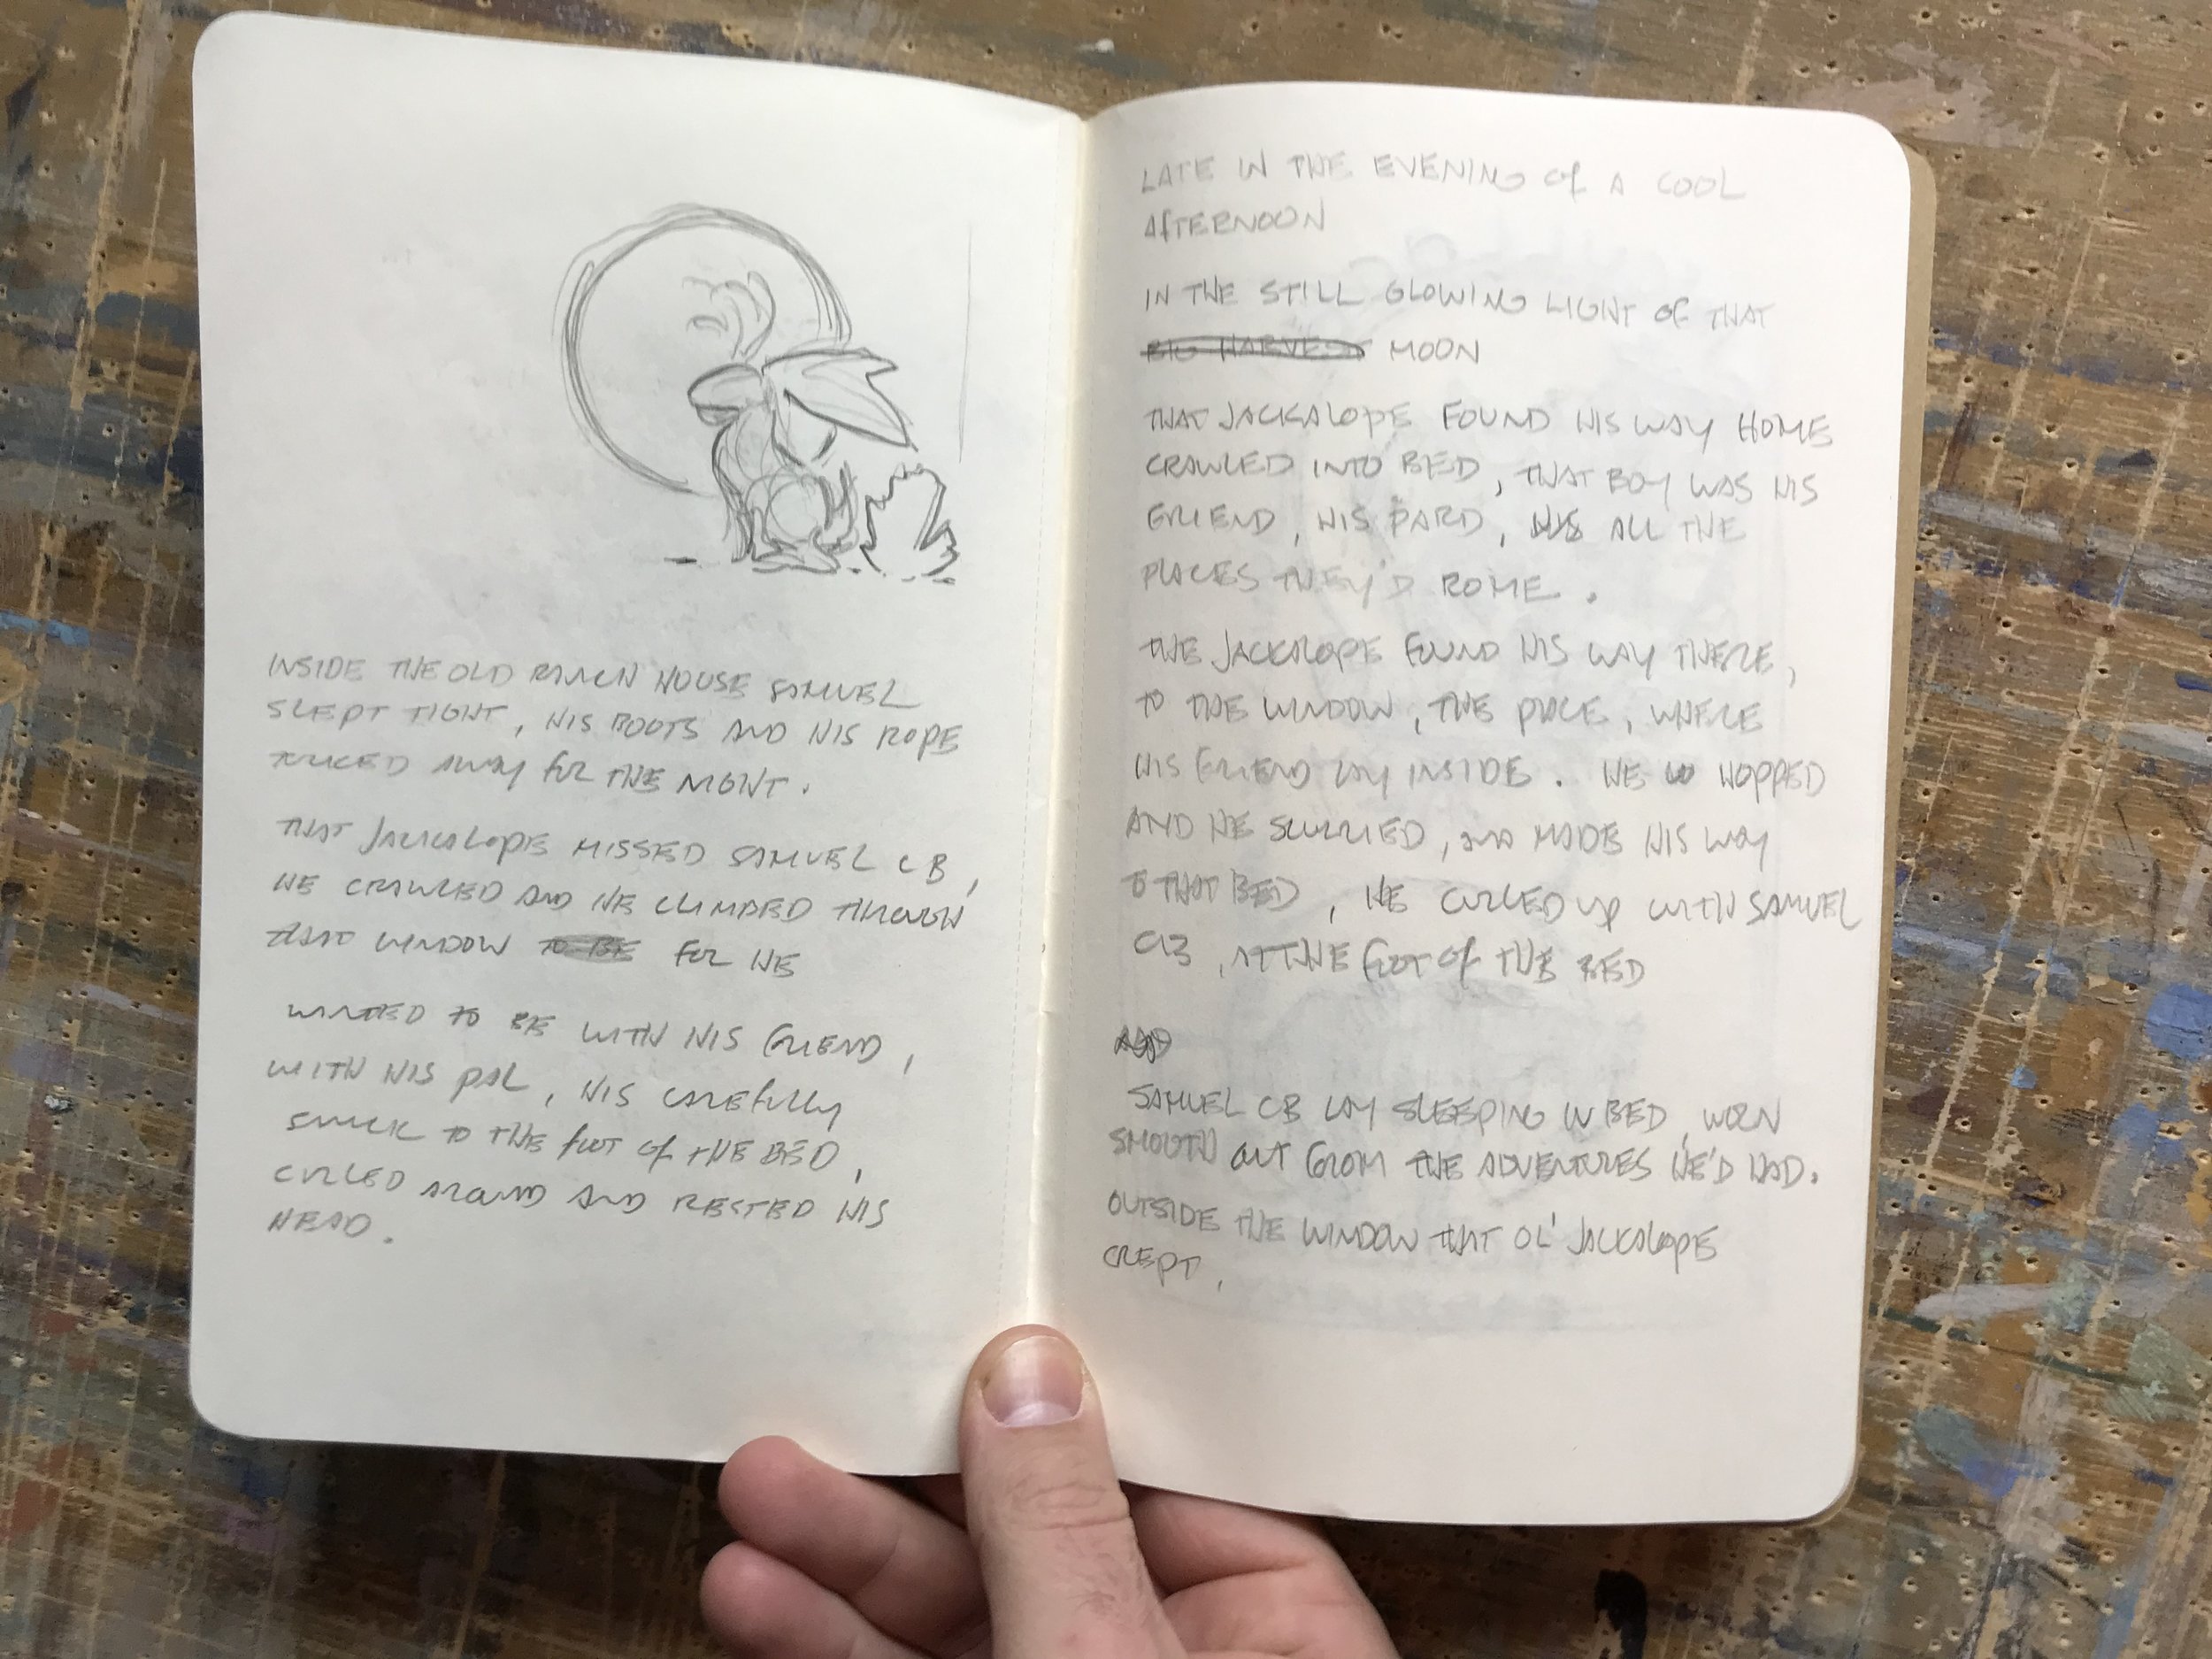 INSIDE THE OLD RANCH HOUSE SAMUEL
SLEPT TIGHT, HIS BOOTS AND HIS ROPE
TUCKED AWAY for THE NIGHT.
THAT JACKALOPE MISSED SAMUEL CB,
HE CRAWLED AND HE CLIMBED THROUGH
THAT WINDOW TO BE FOR HE
WANTED TO BE WITH HIS FRIEND,
WITH HIS PAL, HIS CAREfully
SNUCK TO THE foot of THE BED,
CURLED AROUND AND RESTED HIS
HEAD.
LATE IN THE EVENING Of A COOL
AfTERNOON
IN THE STILL GLOWING LIGHT Of THAT
BIG HARVEST MOON
THAT JACKALOPE FOUND HIS WAY HOME
CRAWLED INTO BED, THAT BOY WAS HIS
FRIEND, HIS PARD, HIS ALL THE
PLACES THEY'D ROME.
THE JACKALOPE FOUND HIS WAY THERE,
TO THE WINDOW, THE PLACE, WHERE
HIS FRIEND LAY INSIDE. HE HOPPED
AND HE SCURRIED, AND MADE HIS WAY
TO THAT BED, HE CURLED UP WITH SAMUEL
CB, AT THE FOOT Of THE BED
AND
SAMUEL CB LAY SLEEPING IN BED, WORN
SMOOTH OUT FROM THE ADVENTURES HE'D HAD.
OUTSIDE THE WINDOW THAT OL' JACKALOPE
CREPT,